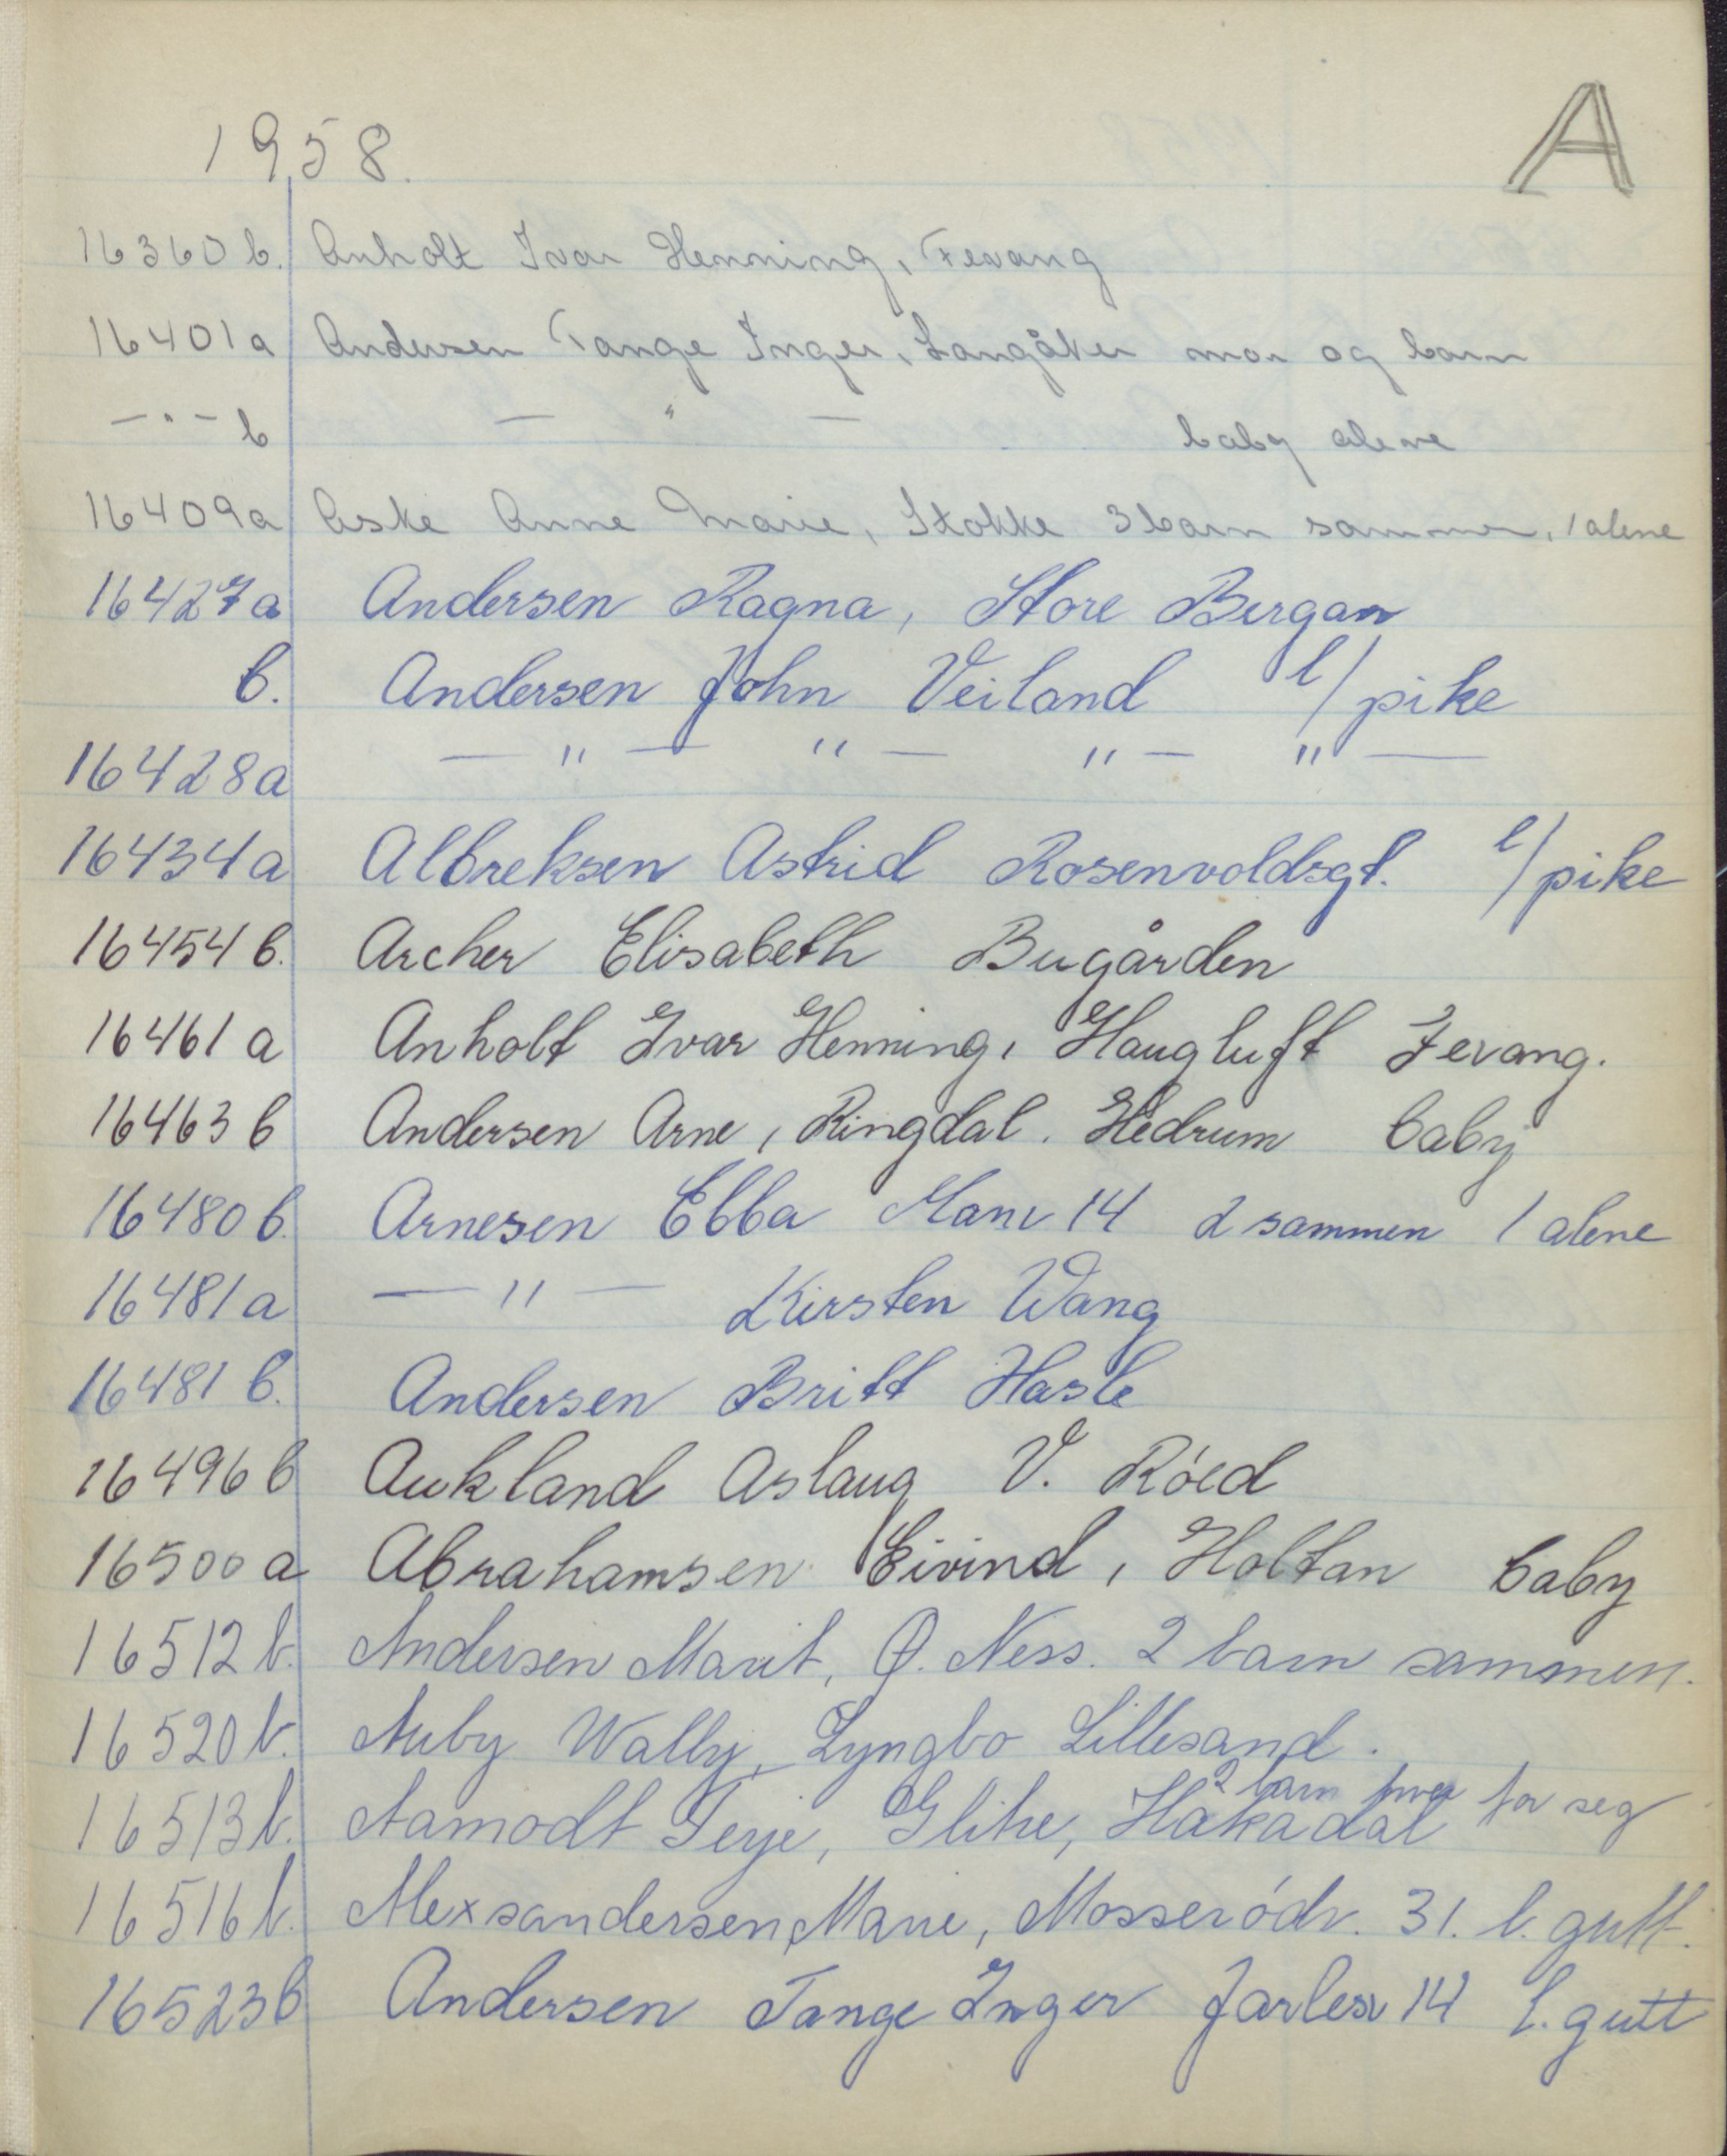 A
1958.
16360 b. Anholt Ivar Henning, Fevang
16401 a Andersen Tange Inger, Langåker mor og barn
— " — b — " — baby alene
16409 a Aske Anne Marie, Stokke 3 barn sammen, 1 alene
16427 a Andersen Ragna, Store Bergan
b. Andersen John Veiland l/pike
16428 a — " — " — " — " —
16434 a Albreksen Astrid Rosenvoldsgt. l/pike
16454 b. Archer Elisabeth Bugården
16461 a Anholt Ivar Henning, Haugtuft Fevang.
16463 b Andersen Arne, Ringdal. Hedrum baby
16480 b. Arnesen Ebba 14 2 sammen 1 alene
16481 a — " — Kirsten Wang
16481 b. Andersen Britt Hasle
16496 b Aukland Aslaug V. Röed
16500 a Abrahamsen Eivind, Holtan baby
16512 b. Andersen Marit, Ø. Ness. 2 barn sammen.
16520 b. Auby Wally, Lyngbo Lillesand.
2 barn hver for seg
16513 b. Aamodt Terje, Håkadal
16516 b. Alexsandersen, Marie, Mosserödv. 31. l. gutt.
16523 b Andersen Tange Inger Jarlesv 14 l. gutt